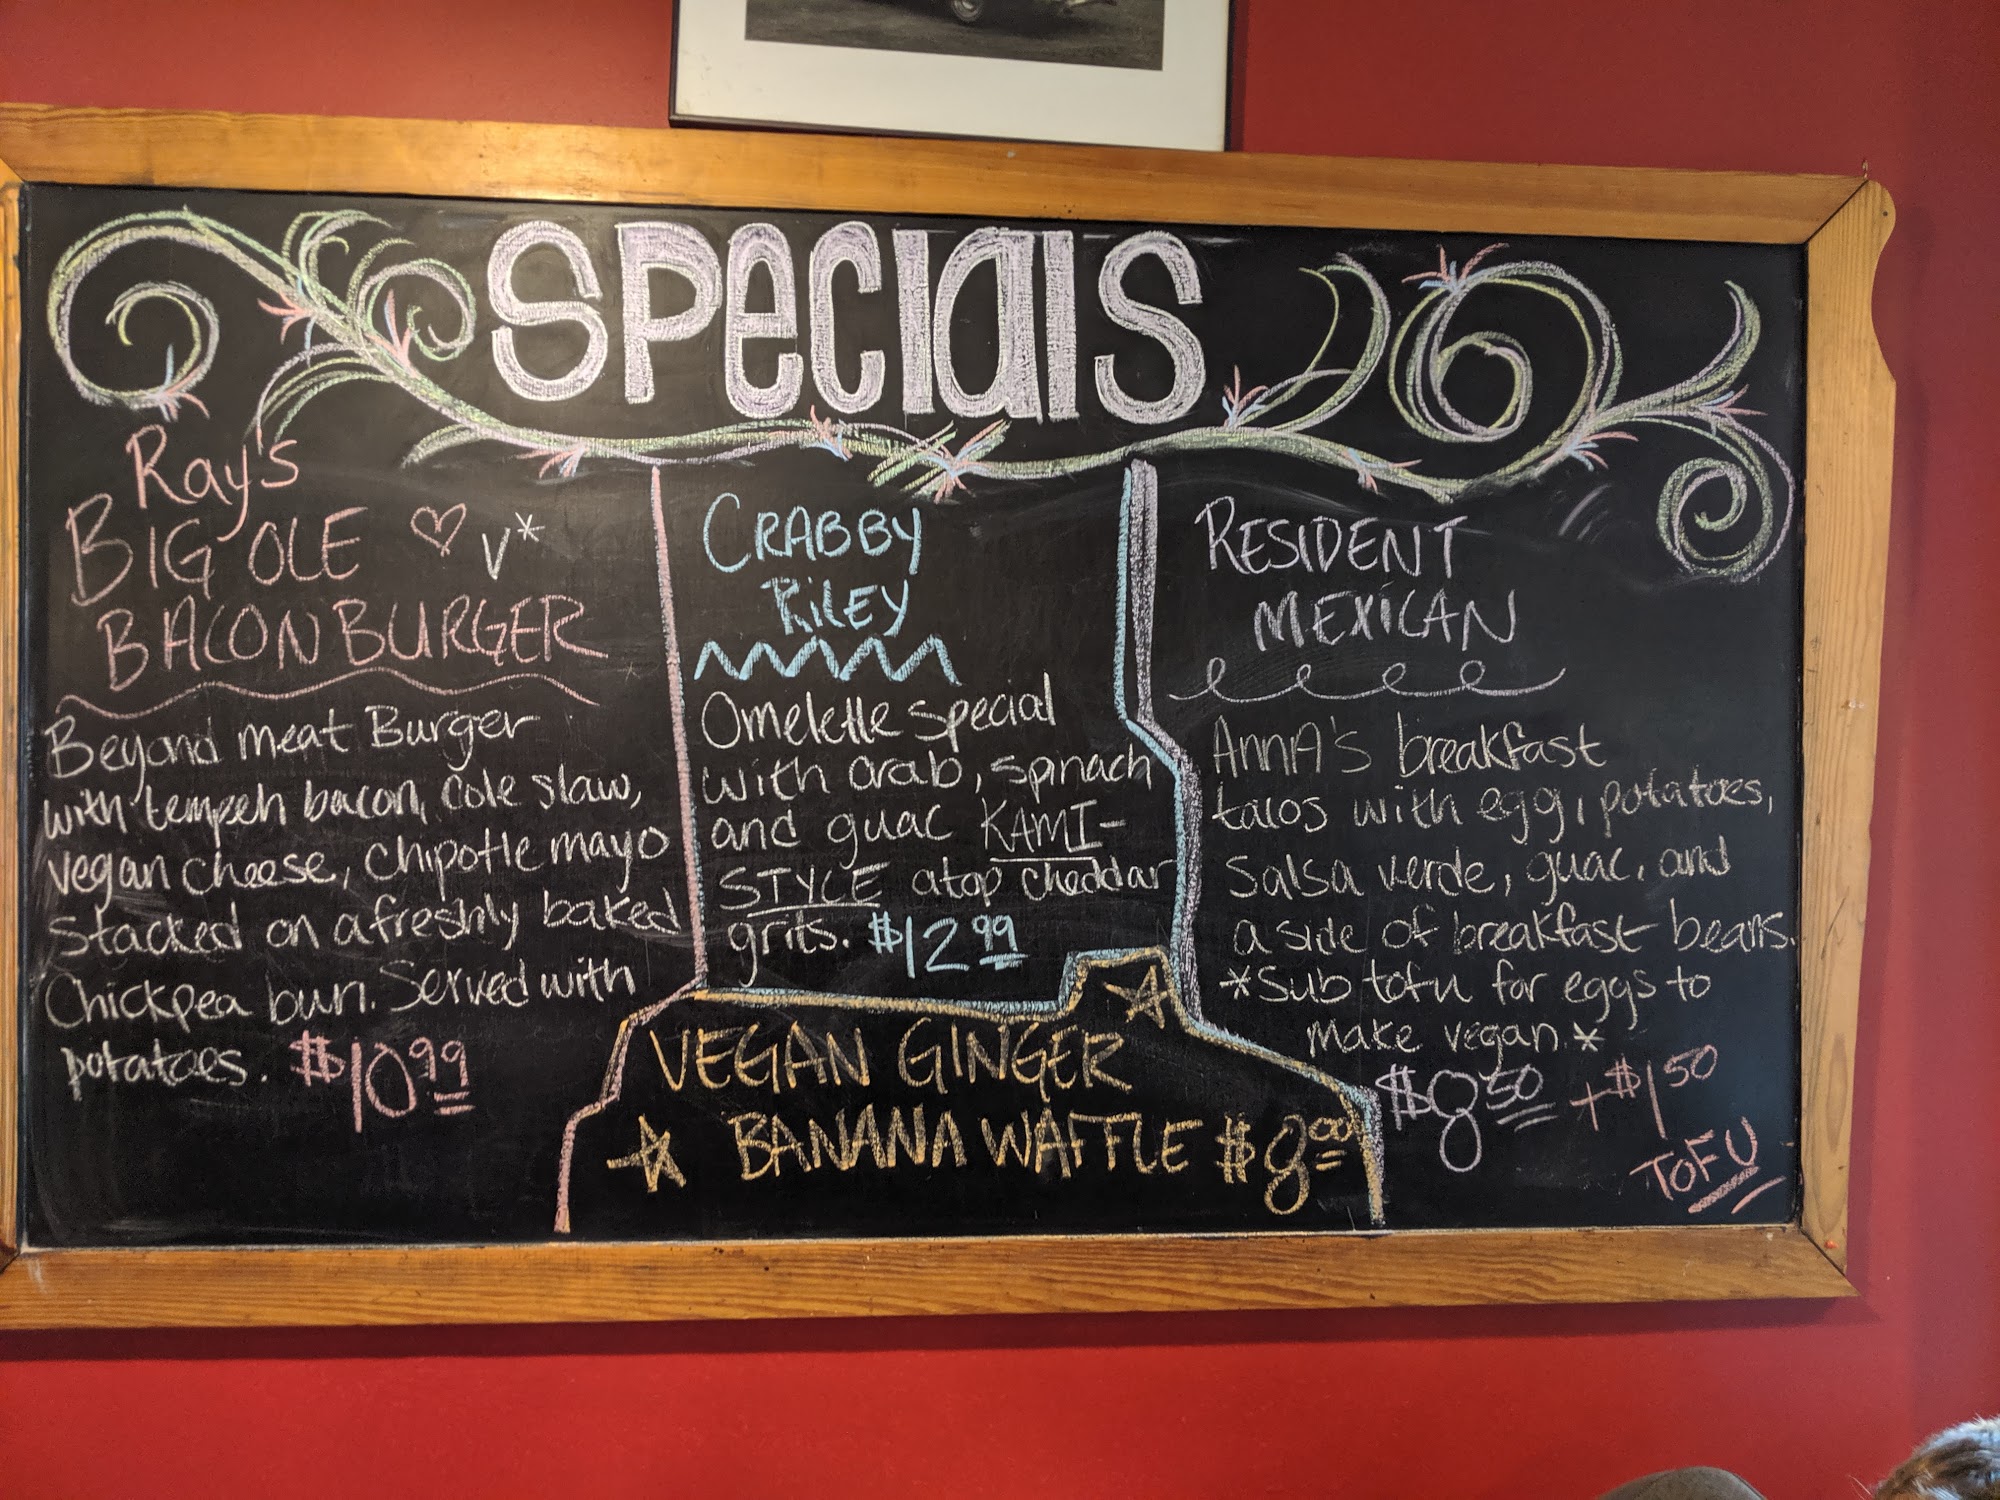 SPecials
Ray's
BIG OLE ♡ V*
BACON BURGER
Beyond meat Burger
with tempeh bacon, cole slaw,
vegan cheese, chipotle mayo
stacked on a freshly baked
Chickpea bun. Served with
potatoes. $10.99
CRABBY
RiLEY
Omelette special
with crab, spinach
and guac KAMI-
STYLE atop cheddar
grits. $12.99
RESIDENT
MEXiCAN
AnnA's breakfast
tacos with egg, potatoes,
salsa verde, guac, and
a side of breakfast beans.
*Sub tofu for eggs to
make vegan.*
$8.50 +$1.50
TOFU
VEGAN GINGER ☆
☆ BANANA WAFFLE $8.00